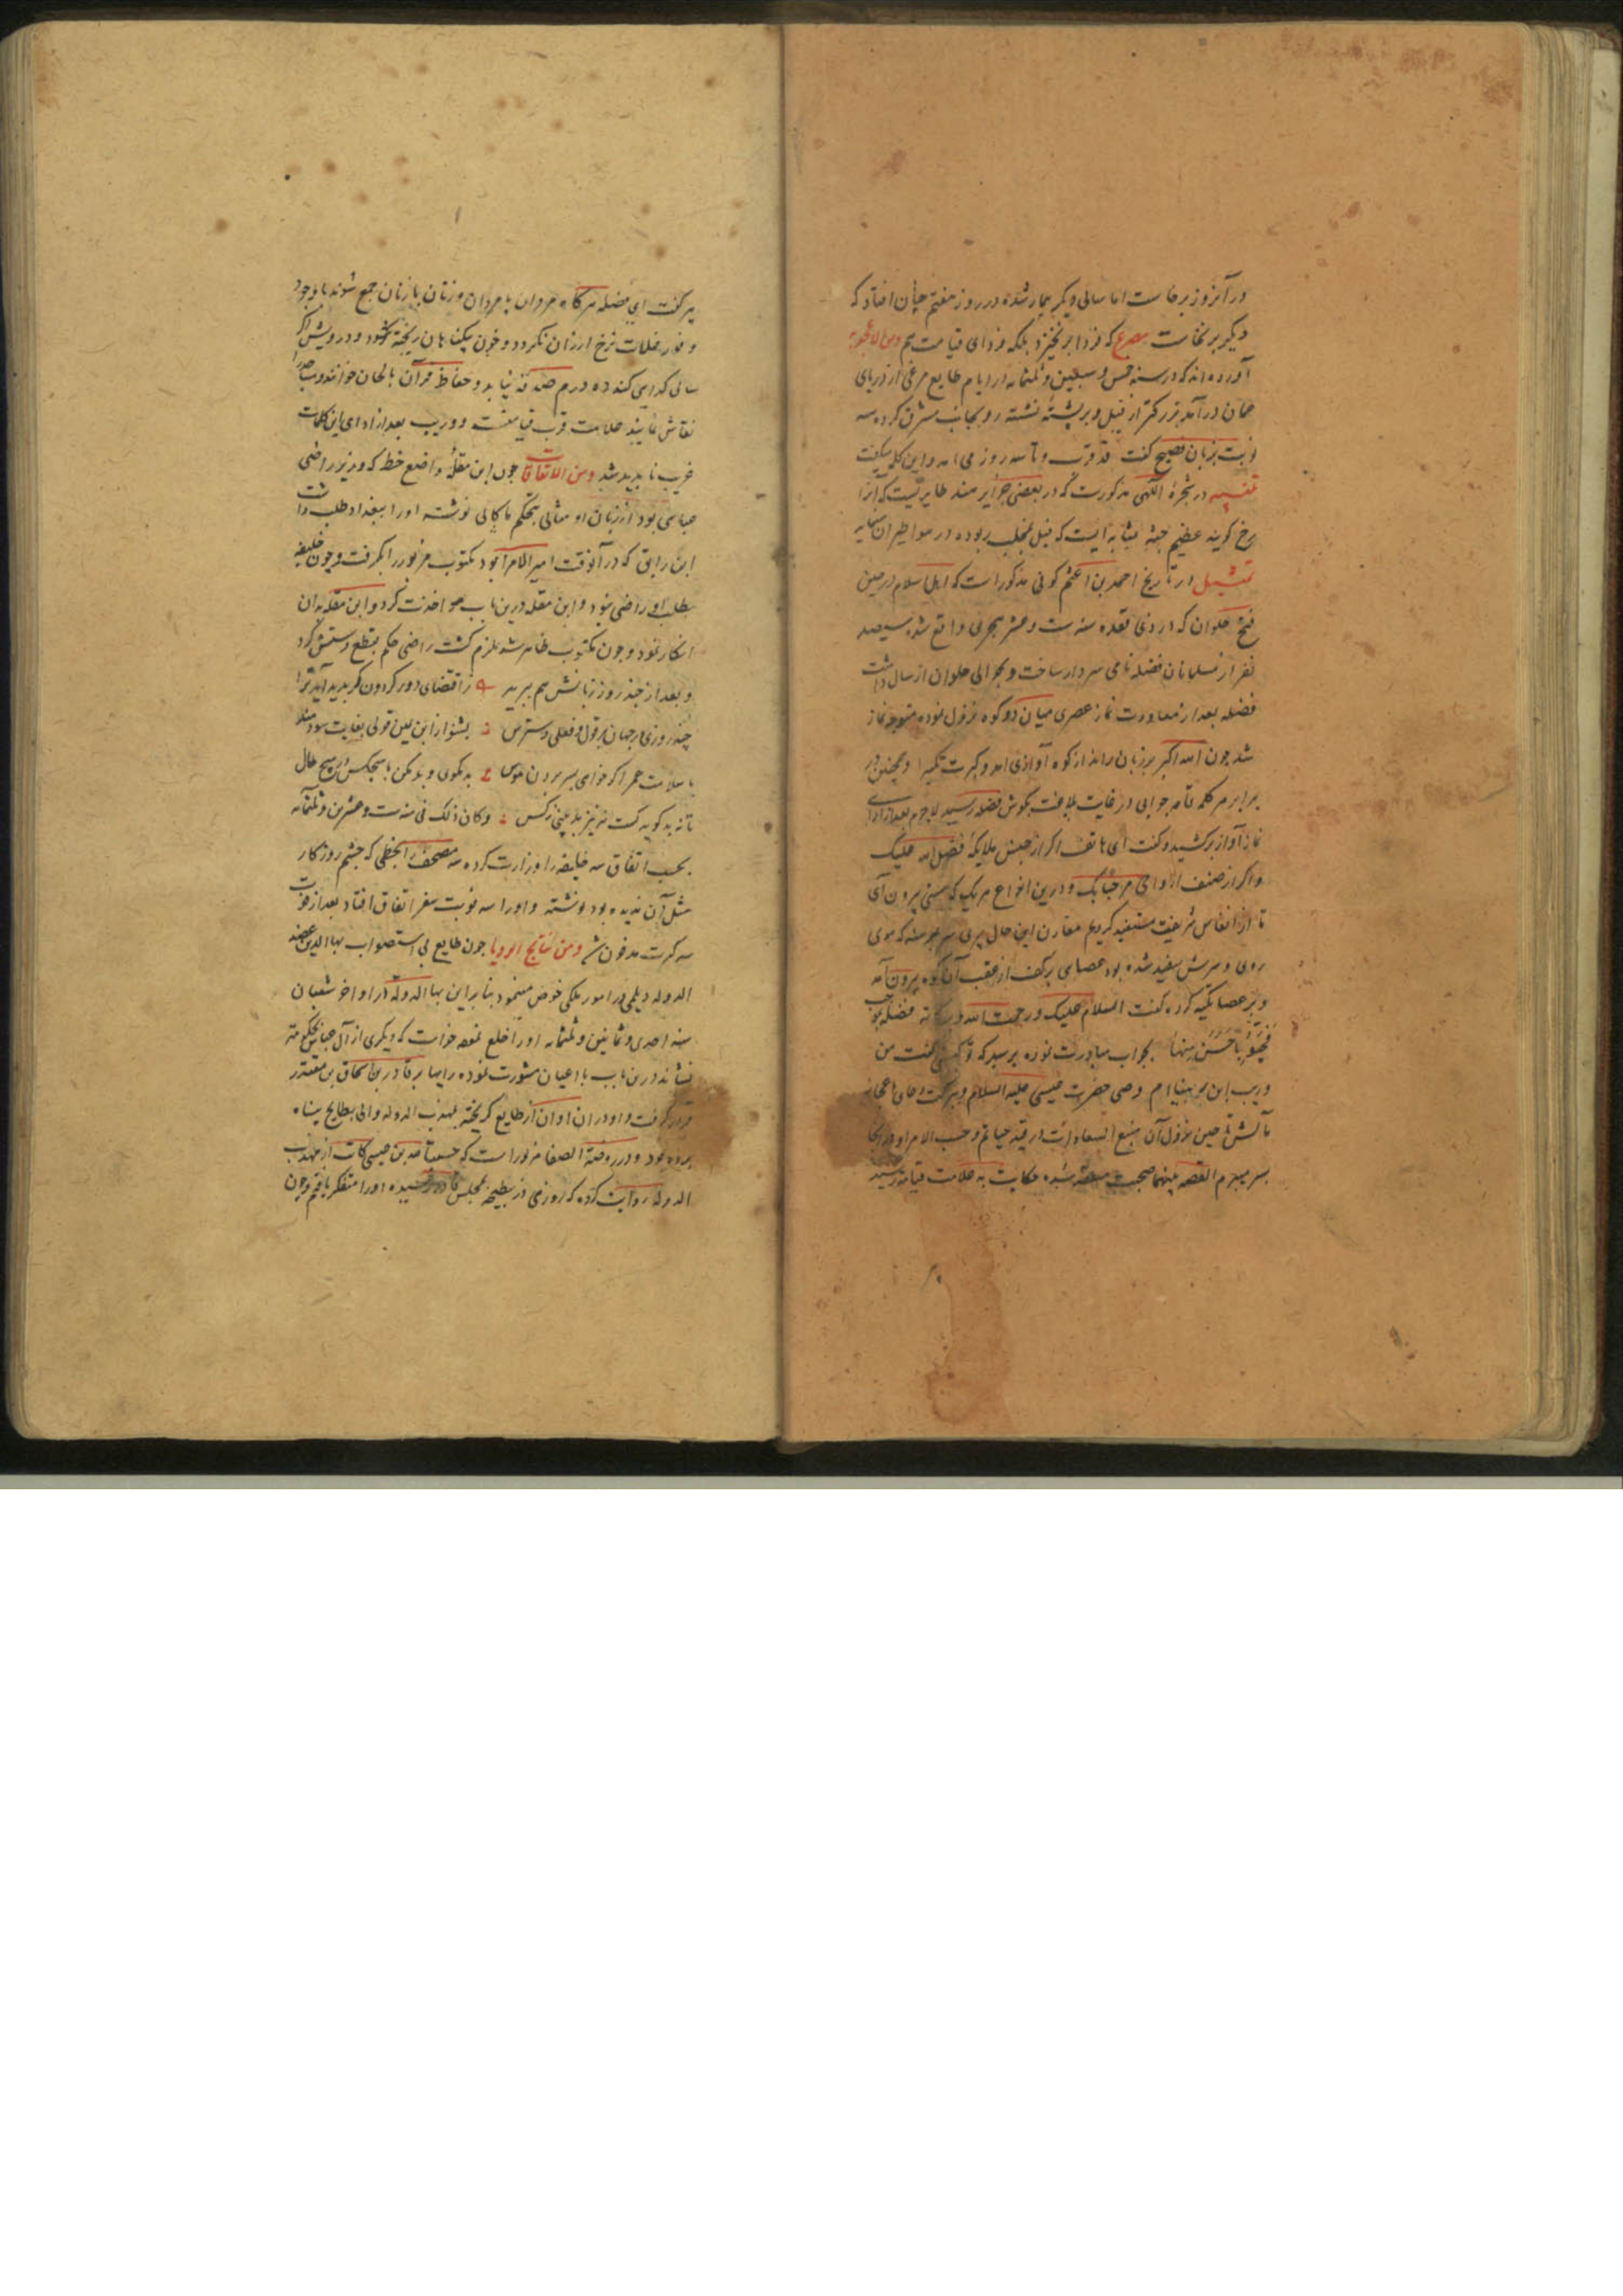 در آنروز برخاست اما سالی دیگر بیمار شده در روز هفتم چنان افتاد که
دیگر برنخاست مصرع که فردا برنخیزد بلکه فردای قیامت هم ومن الاعجوبه
آورده‌اند که در سنه خمس و سبعین و ثلثمائه در ایام طایع مرغی از دریای
عمان درآمد بزرکتر از فیل و بر پشته نشسته رو بجانب مشرق کرده سه
نوبت بزبان فصیح کفت قد قرب و تا سه روز می امد و این کلمه میکفت
در شجرهٔ الهی مذکورست که در بعضی جزایر هند طایریست که انرا
رخ کویند عظیم جثه بمثابه ایست که فیل بمخلب ربوده در هوا طیران نماید
تمثیل در تاریخ احمد بن اعثم کوفی مذکور است که اهل اسلام در حین
فتح حلوان که در ذی قعده سنه ست و عشر هجری واقع شد سیصد
نفر از مسلمانان فضله نامی سردار ساخت و بحوالی حلوان ارسال داشت
فضله بعد از معاودت نماز عصری میان دو کوه نزول نموده متوجه نماز
شد چون الله اکبر بر زبان راند از کوه آوازی امد و کبرت تکبیرا و همچنین در
برابر هر کلمه تامه جوابی در غایت بلاغت بکوش فضله رسید لاجرم بعد از ادای
نماز آواز برکشید و کفت ای هاتف اکر از جنس ملایکهٔ فضل الله علیک
و اکر از صنف ارواحی مرحبا بک و درین انواع هر یک که هستی بیرون آی
تا از انفاس شریفت مستفید کردیم مقارن این حال پیری که موی
روی و سرش سفید شده بود عصای برکف از عقب آن کوه بیرون آمد
و بر عصا تکیه کرده کفت السلام علیک ورحمت الله وبرکاته فضله بموجب
فحیوا باحسن منها بجواب مبادرت نموده پرسید که تو کیستی کفت من
وریب بن برهنیا ام وصی حضرت عیسی علیه السلام و ببرکت دعای
تا حین نزول آن منبع السعادات در قید حیاتم و حسب الامر او در انجا
بسر میبرم القصه بینهما صحبت منعقد شده حکایت به علامت قیامت رسید
پیر کفت ای فضله هرکاه مردان با مردان و زنان با زنان جمع شوند با وجود
وفور غلات نرخ ارزان نکردد و خون بیکناهان ریخته شود و درویش اکر
سالی کدایی کند ده درم صدقه نیابد و حفاظ قرآن بالحان خوانند و مساجد را
نقاش نمایند علامت قرب قیامتست و وریب بعد از ادای این کلمات
غریب ناپدید شد ومن الاتفاقات چون ابن مقله واضع خط که وزیر راضی
عباسی بود از زبان او مثالی بحکم ماکانی نوشته او را ببغداد طلب داشت
ابن رایق که در آنوقت امیر الامرا بود مکتوب مزبور را بکرفت و چون خلیفه
بطلب او راضی نبود و ابن مقله درین باب مواخذت کرد و ابن مقله بدان
انکار نمود و چون مکتوب ظاهر شد ملزم کشت راضی حکم بقطع دستش کرد
و بعد از چند روز زبانش هم ببرید ز اقتضای دور کردون کر پدید آید ترا
چند روزی در جهان بر قول و فعلی دسترس بشنو از ابن یمین قولی بغایت سودمند
با سلامت عمر اکر خواهی بسر بردن هوس بد مکوی و بد مکن با هیچکس در هیچ حال
تا نه بد کوید کست نه نیز بد بینی ز کس وکان ذلک فی سنه ست وعشرین وثلثمائه
بحسب اتفاق سه خلیفه را وزارت کرده سه مصحف را بخطی که چشم روزکار
مثل آن ندیده بود نوشته و او را سه نوبت سفر اتفاق افتاد بعد از فوت
سه کرت مدفون شد ومن نتایج الرویا چون طایع بی استصواب بهاالدین عضد
الدوله دیلمی در امور ملکی خوض مینمود بنابراین بهاالدوله در اواخر شعبان
سنه احدی وثمانین وثلثمائه او را خلع نموده خواست که دیکری از آل عباس بحکومت
نشاند درین باب با اعیان مشورت نموده رایها بر قادر بن اسحاق بن مقتدر
قرار کرفت و او در ان اوان از طایع کریخته بمهذب الدوله والی بطایح پناه
برده بود و در روضة الصفا مزبور است که بن عیسی کاتب از مهذب
الدوله روایت کرده که روزی در بطیحه بمجلس قادر رسیده او را متفکر یافتم و چون